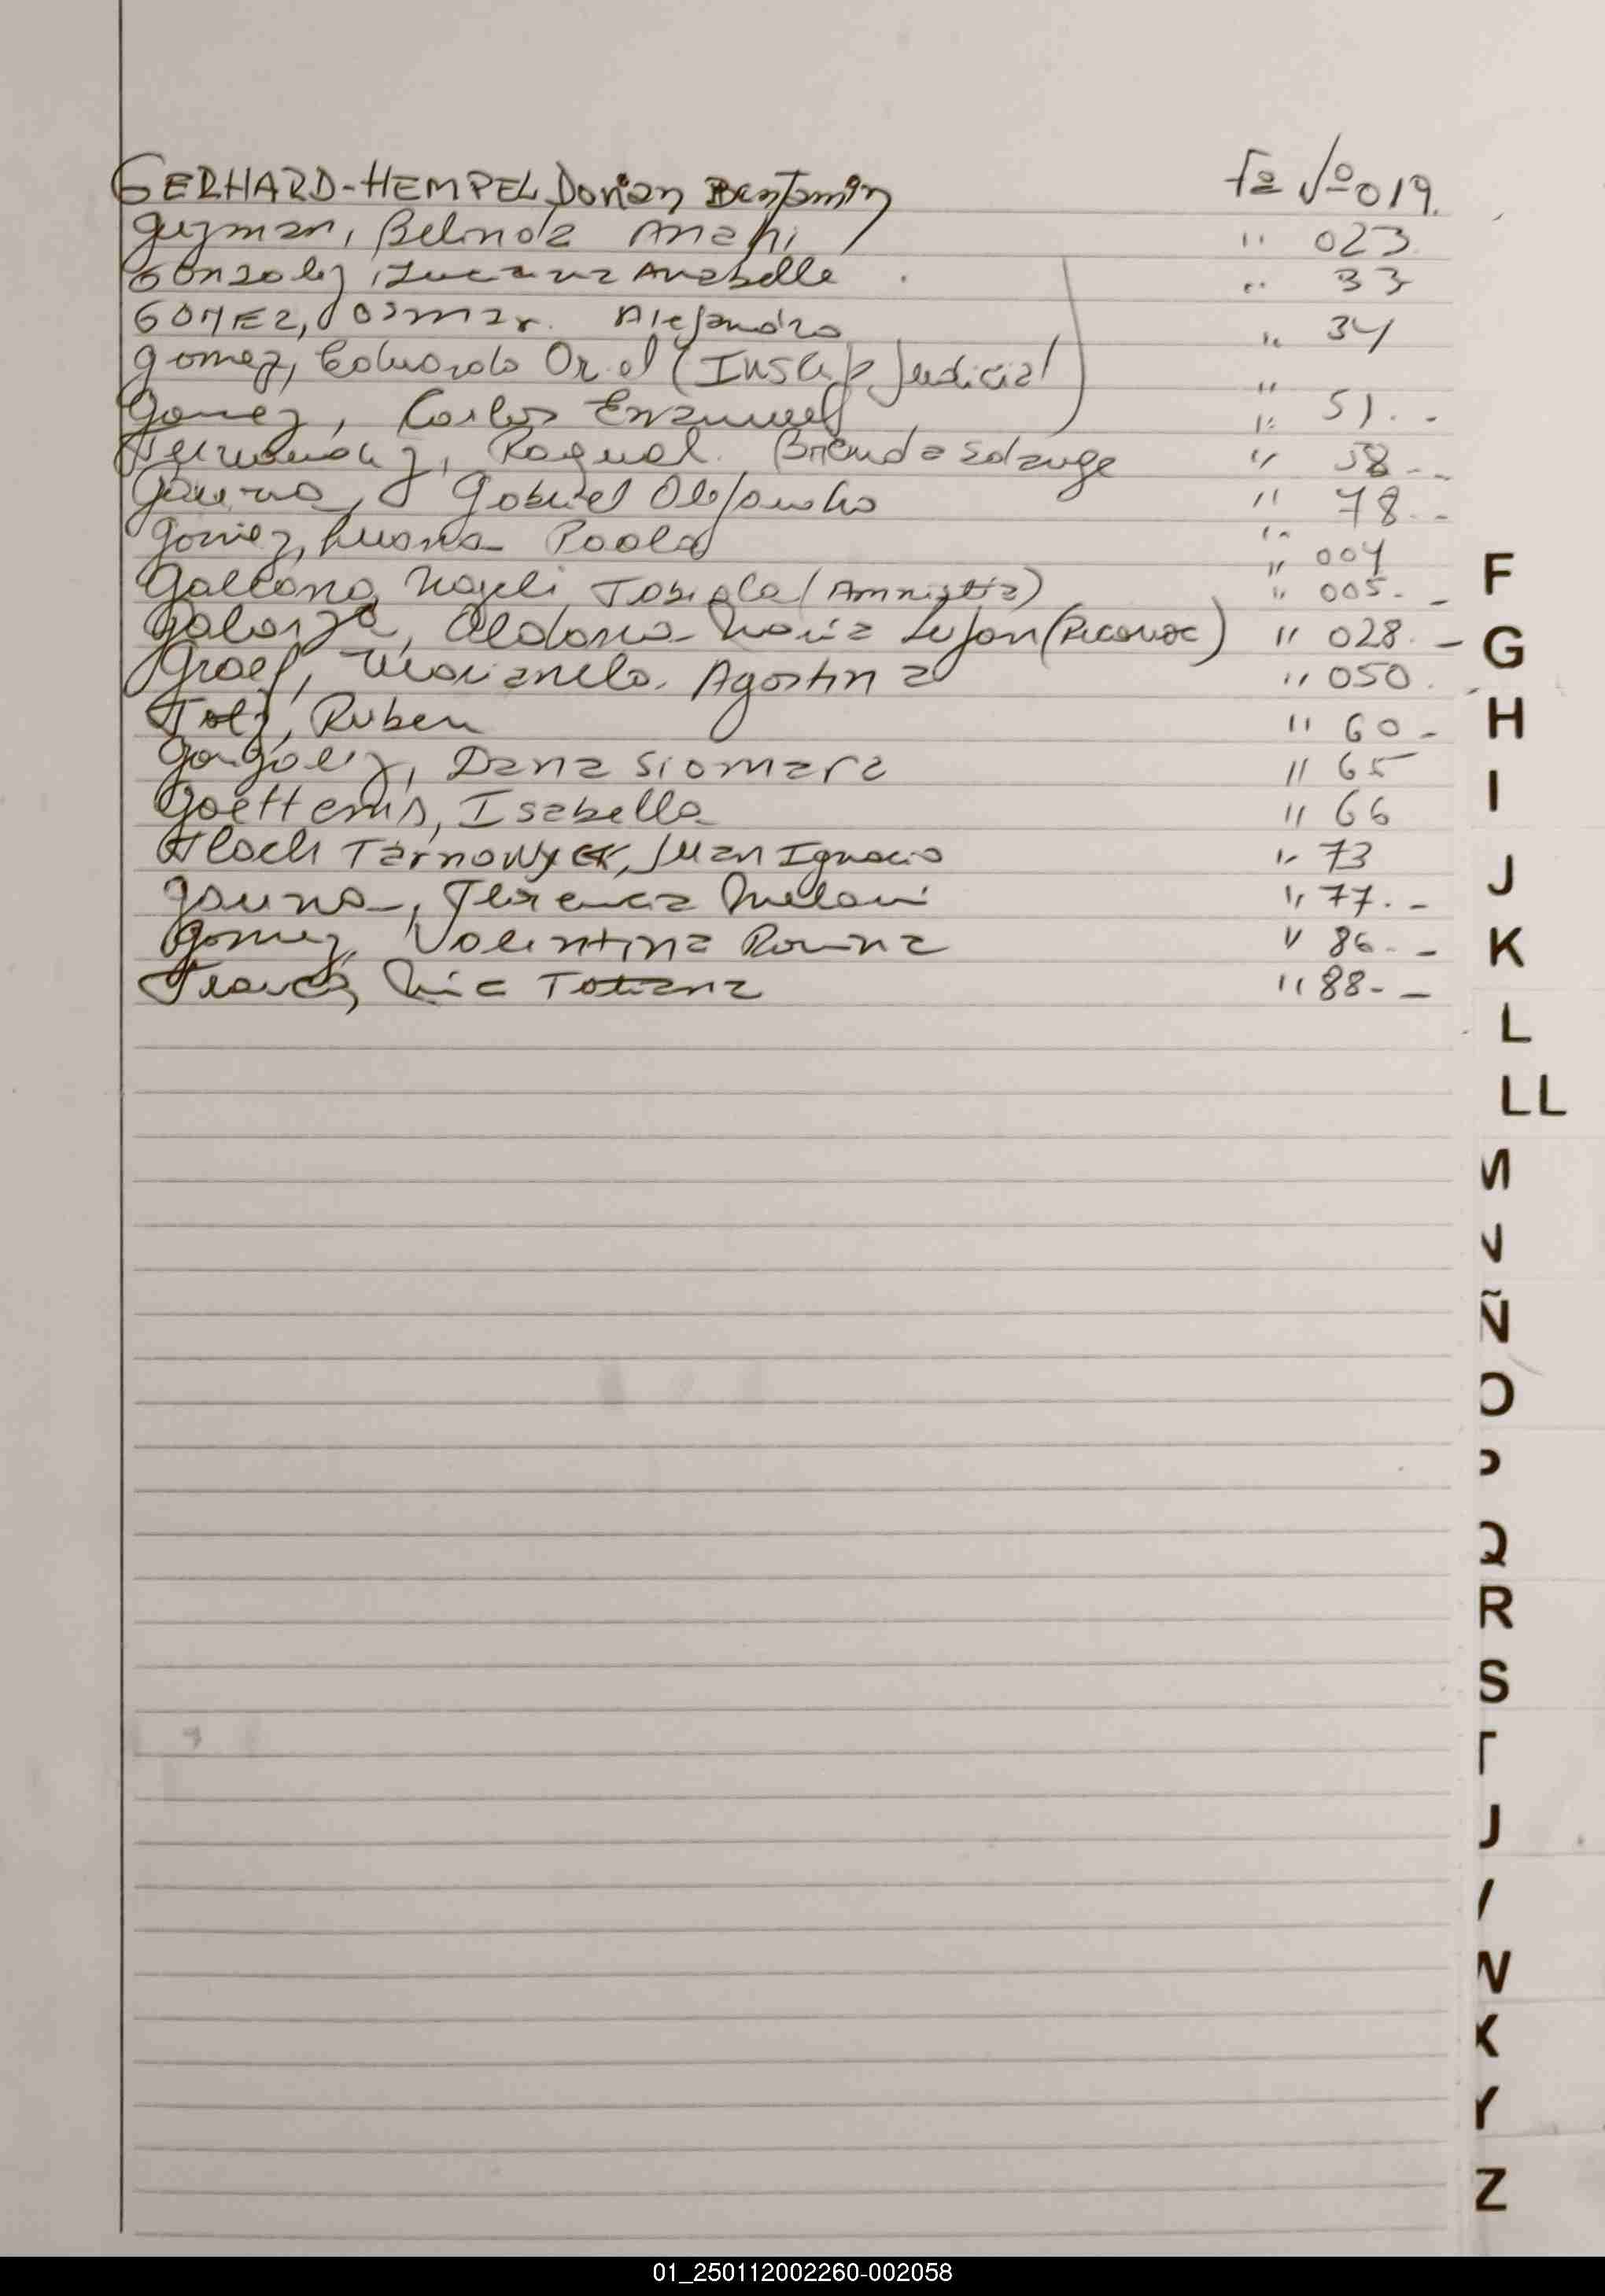 GERHARD-HEMPEL, Dorian Benjamin Fº Nº 019.
Guzman, Belinda Anahi '' 023
Gonzalez, Luciana Anabella '' 33
GOMEZ, Osmar Alejandro '' 34
Gomez, Eduardo (Inscrip Judicial) ''
Gomez, Carlos Emanuel '' 51.-
Raquel Brenda Solange '' 58.-
Gauna, Gabriel Alejandro '' 78.-
Gomez, Luana Paola '' 004
Galeano, Nayeli (Amnistia) '' 005.-
Galarza, Aldana Maria Lujan (Reconoc) '' 028.-
Graef, Marianela Agostina '' 050.
Ruben '' 60-
Gonzalez, Dana Siomara '' 65
Goettems, Isabella '' 66
Juan Ignacio '' 73
Gauna, Florencia Melani '' 77.-
Gomez, Valentina Romina '' 86.-
Mia Tatiana '' 88.-
F
G
H
I
J
K
L
LL
M
N
Ñ
O
P
Q
R
S
T
U
V
W
X
Y
Z
01_250112002260-002058